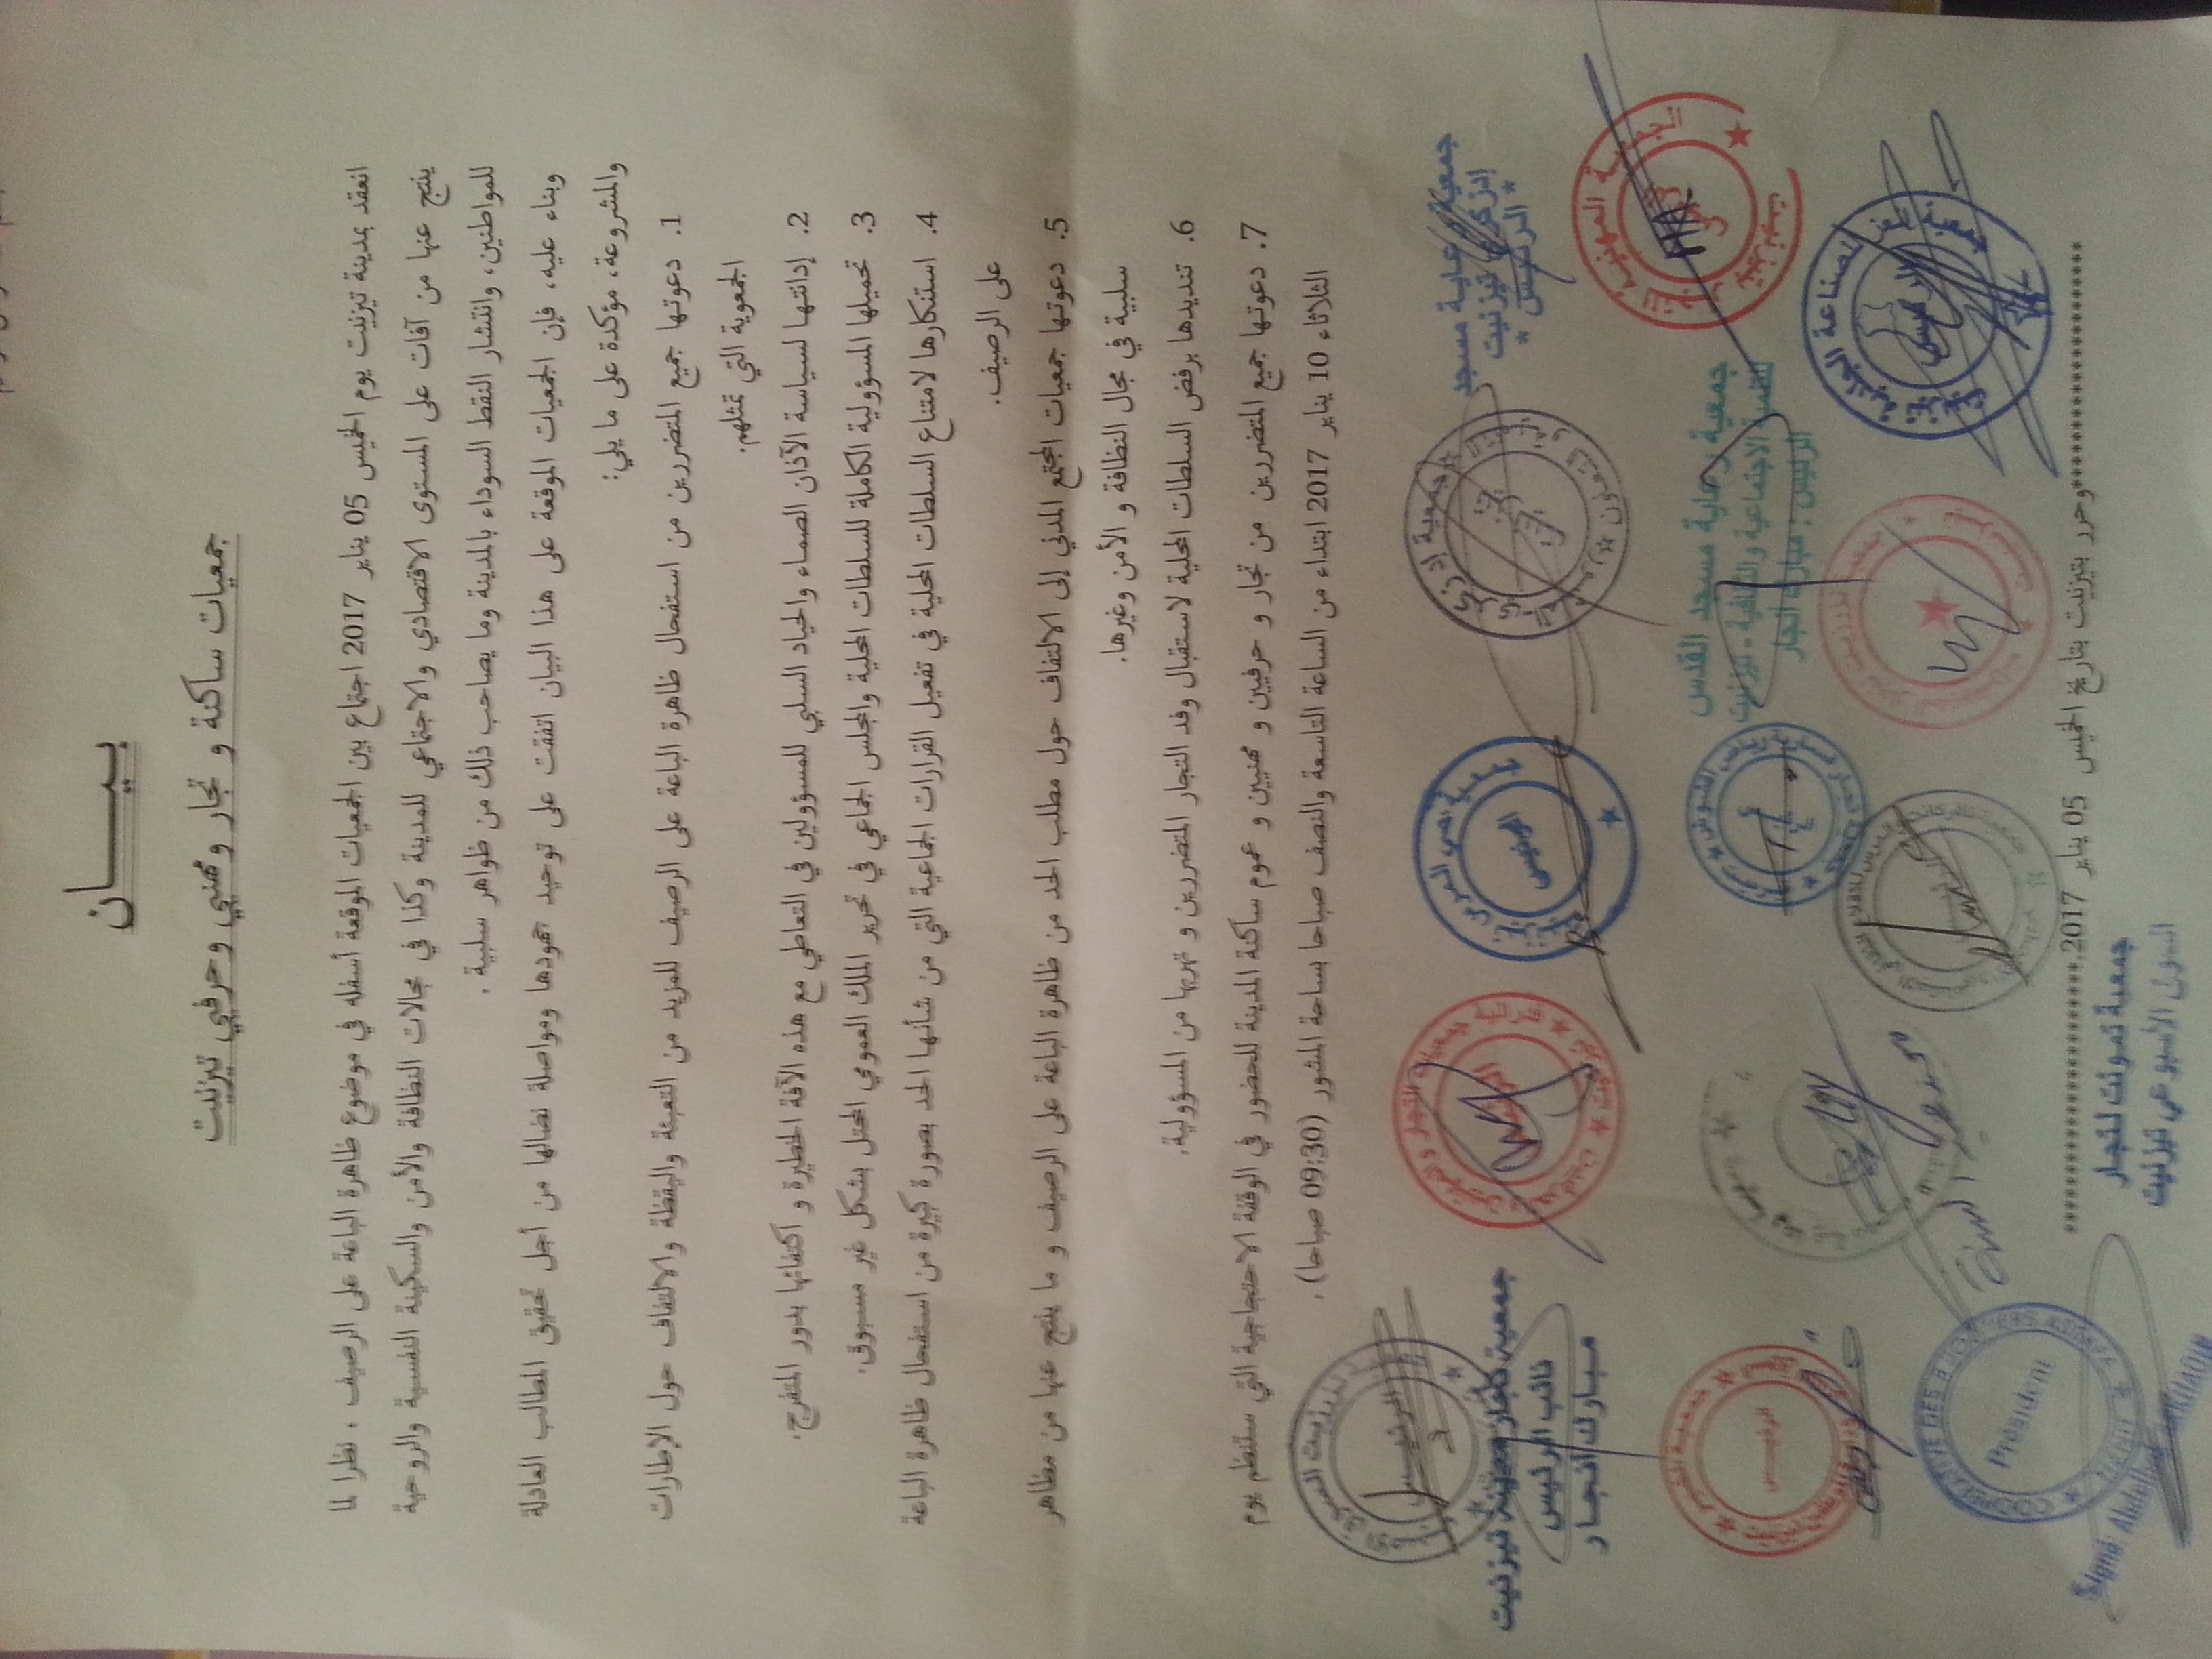 بيـــــان
جمعيات ساكنة و تجار ومهنيي وحرفيي تيزنيت
انعقد بمدينة تيزنيت يوم الخميس 05 يناير 2017 اجتماع بين الجمعيات الموقعة أسفله في موضوع ظاهرة الباعة على الرصيف ، نظرا لما
ينتج عنها من آفات على المستوى الاقتصادي والاجتماعي للمدينة وكذا في مجالات النظافة والأمن والسكينة النفسية والروحية
للمواطنين، وانتشار النقط السوداء بالمدينة وما يصاحب ذلك من ظواهر سلبية .
وبناء عليه، فإن الجمعيات الموقعة على هذا البيان اتفقت على توحيد جهودها ومواصلة نضالها من أجل تحقيق المطالب العادلة
والمشروعة، مؤكدة على ما يلي:
1. دعوتها جميع المتضررين من استفحال ظاهرة الباعة على الرصيف للمزيد من التعبئة واليقظة والالتفاف حول الإطارات
الجمعوية التي تمثلهم.
2. إدانتها لسياسة الآذان الصماء والحياد السلبي للمسؤولين في التعاطي مع هذه الآفة الخطيرة و اكتفائها بدور المتفرج.
3. تحميلها المسؤولية الكاملة للسلطات المحلية والمجلس الجماعي في تحرير الملك العمومي المحتل بشكل غير مسبوق.
4. استنكارها لامتناع السلطات المحلية في تفعيل القرارات الجماعية التي من شأنها الحد بصورة كبيرة من استفحال ظاهرة الباعة
على الرصيف.
5. دعوتها جمعيات المجتمع المدني إلى الالتفاف حول مطلب الحد من ظاهرة الباعة على الرصيف و ما ينتج عنها من مظاهر
سلبية في مجال النظافة و الأمن وغيرها.
6. تنديدها برفض السلطات المحلية لاستقبال وفد التجار المتضررين و تهربها من المسؤولية.
7. دعوتها جميع المتضررين من تجار و حرفيين و مهنيين و عموم ساكنة المدينة للحضور في الوقفة الاحتجاجية التي ستنظم يوم
الثلاثاء 10 يناير 2017 ابتداء من الساعة التاسعة والنصف صباحا بساحة المشور (09:30 صباحا) .
جمعية رعاية مسجد
إدزكري تيزنيت
* الرئيس *
الرئيس
الرئيس
جمعية تجار مدينة تيزنيت
نائب الرئيس
مبارك انجار
جمعية رعاية مسجد القدس
للتنمية الاجتماعية والثقافية - تيزنيت
الرئيس : مبارك انجار
الرئيس
COOPERATIVE DES BIJOUTIERS
President
محمد
وحرر بتيزنيت بتاريخ الخميس 05 يناير 2017
جمعية تمونت للتجار
السوق الأسبوعي تيزنيت